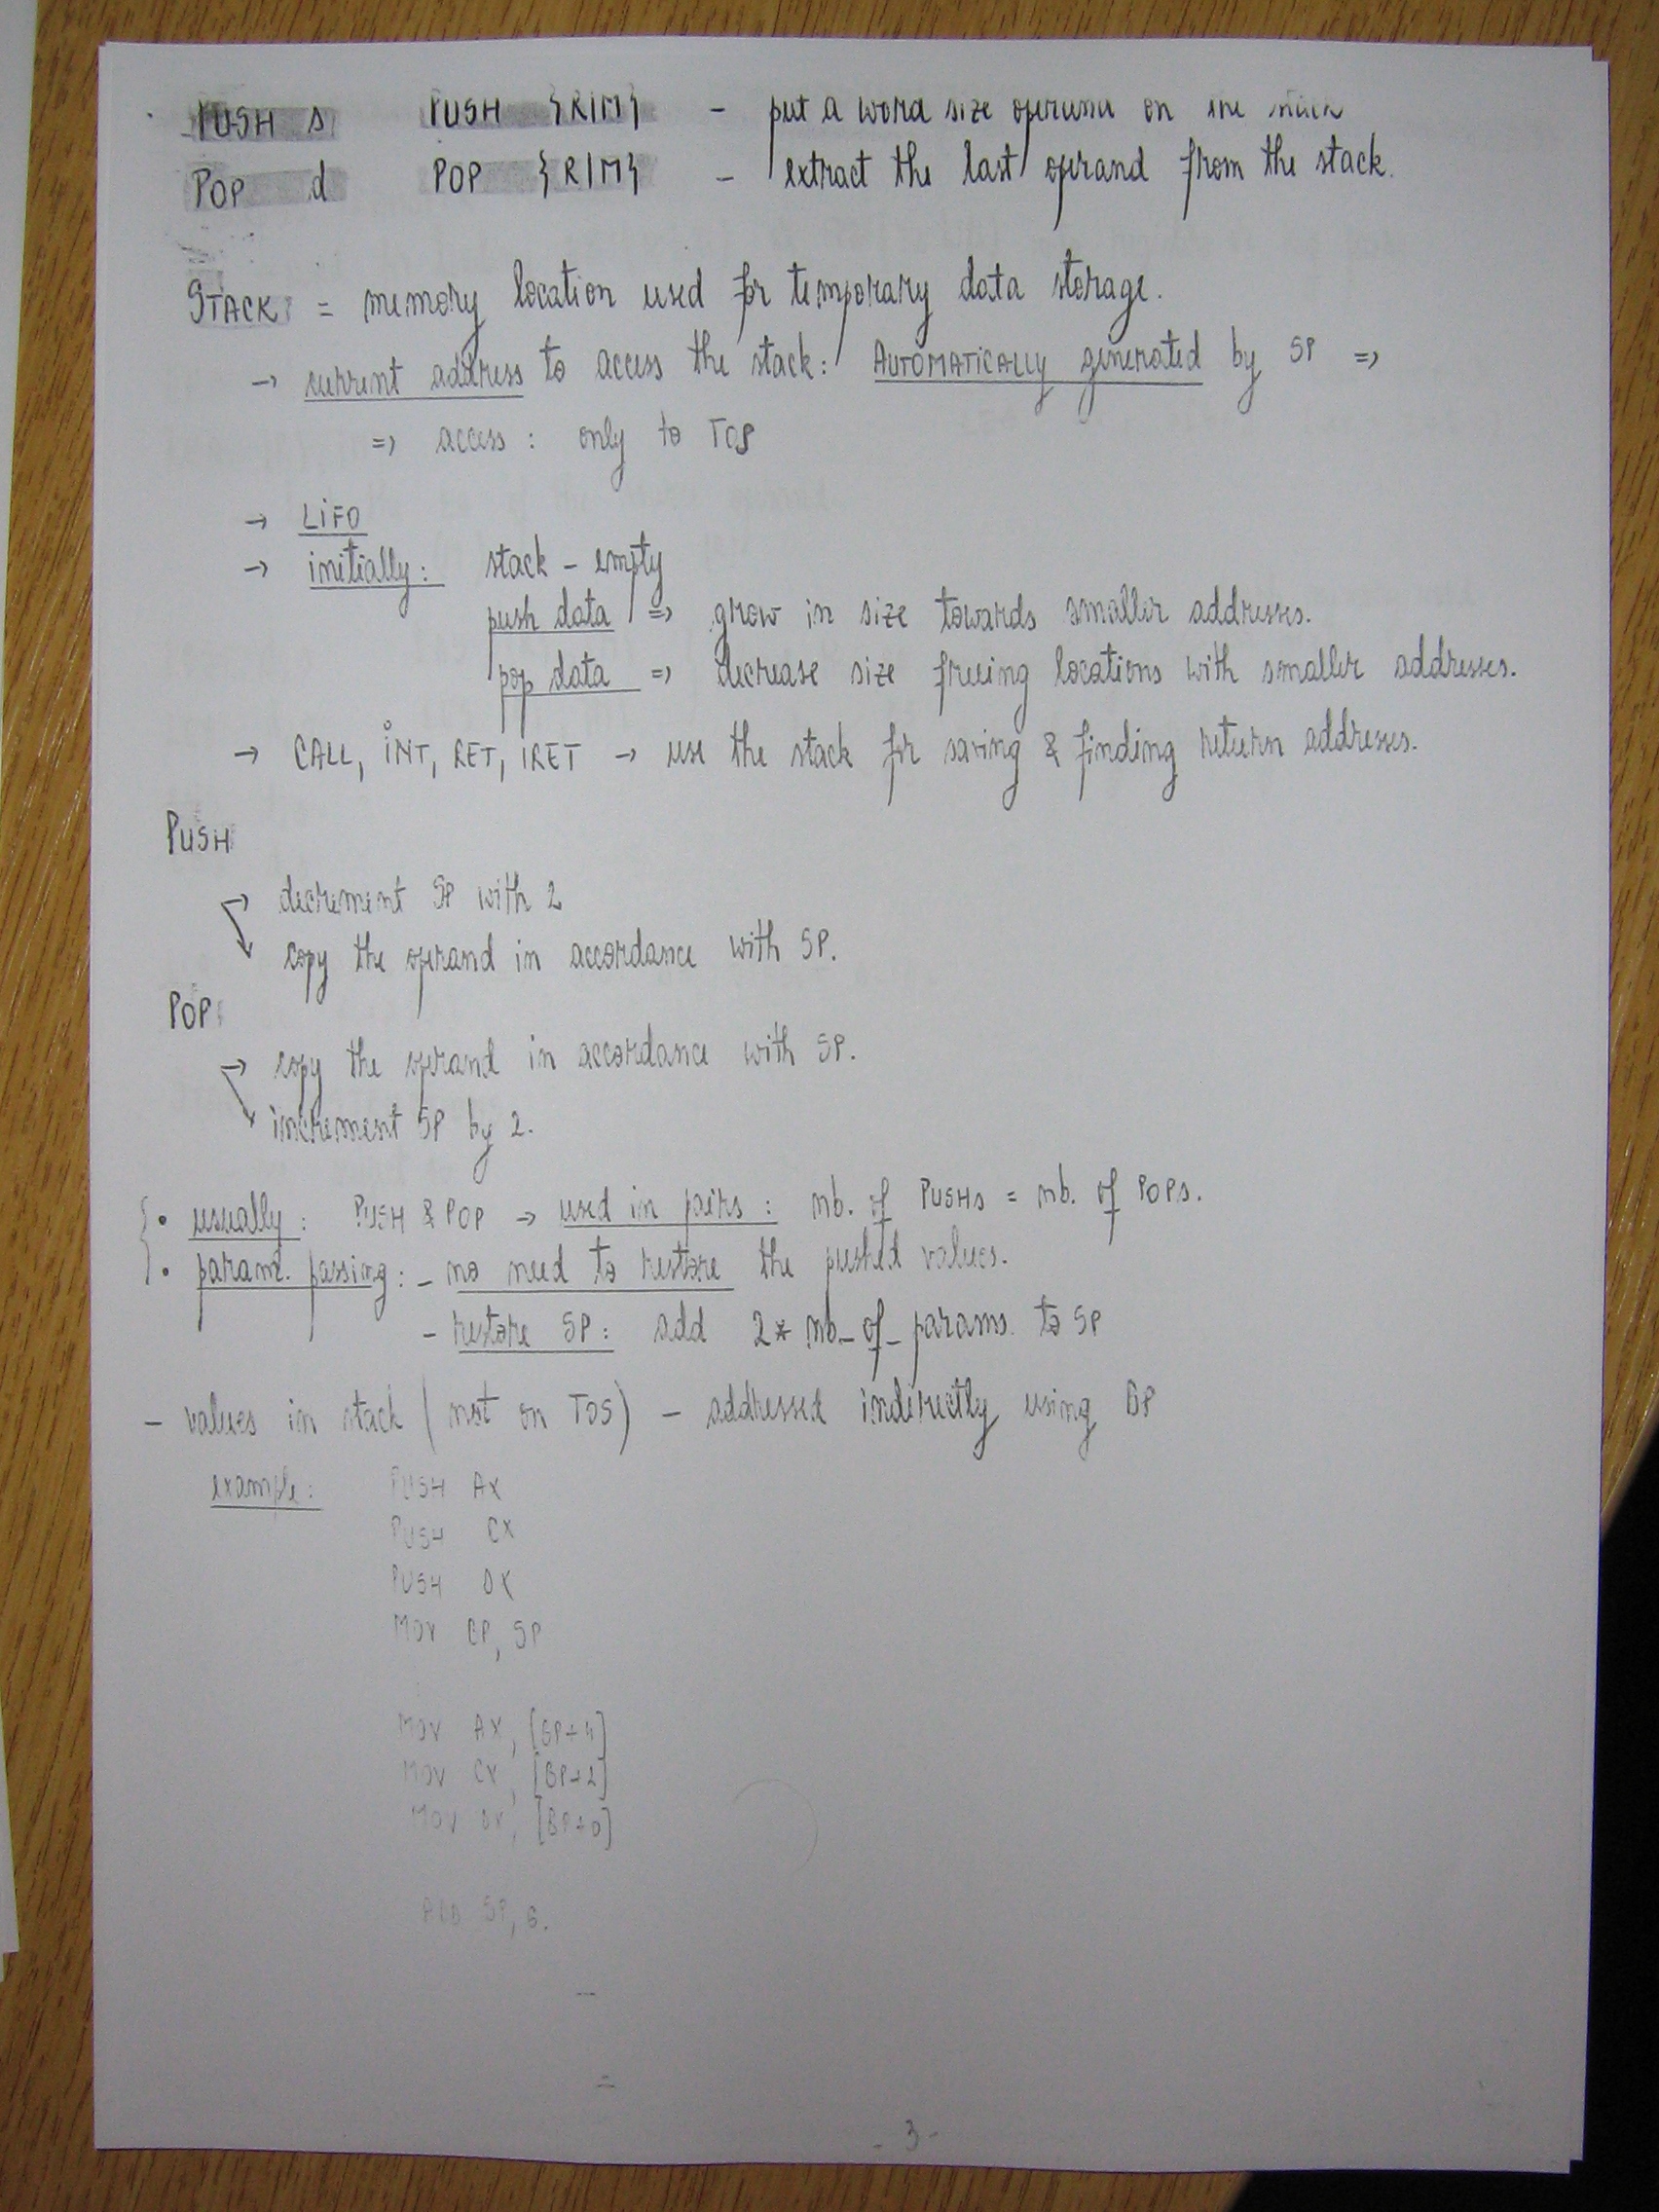 PUSH s PUSH {R/M} - put a word size operand on the stack
POP d POP {R/M} - extract the last operand from the stack.
STACK = memory location used for temporary data storage.
→ current address to access the stack: AUTOMATICALLY generated by SP =>
=> access: only to TOS
→ LIFO
→ initially: stack - empty
push data => grow in size towards smaller addresses.
pop data => decrease size freeing locations with smaller addresses.
→ CALL, INT, RET, IRET → use the stack for saving & finding return addresses.
PUSH
→ decrement SP with 2
copy the operand in accordance with SP.
POP
→ copy the operand in accordance with SP.
increment SP by 2.
• usually: PUSH & POP → used in pairs: nb. of PUSHs = nb. of POPs.
• param. passing: - no need to restore the pushed values.
- restore SP: add 2* nb_of_params. to SP
- values in stack (not on TOS) - addressed indirectly using BP
example: PUSH AX
PUSH CX
PUSH DX
MOV BP, SP
MOV AX, [BP+4]
MOV CX, [BP+2]
MOV DX, [BP+0]
ADD SP, 6.
- 3 -